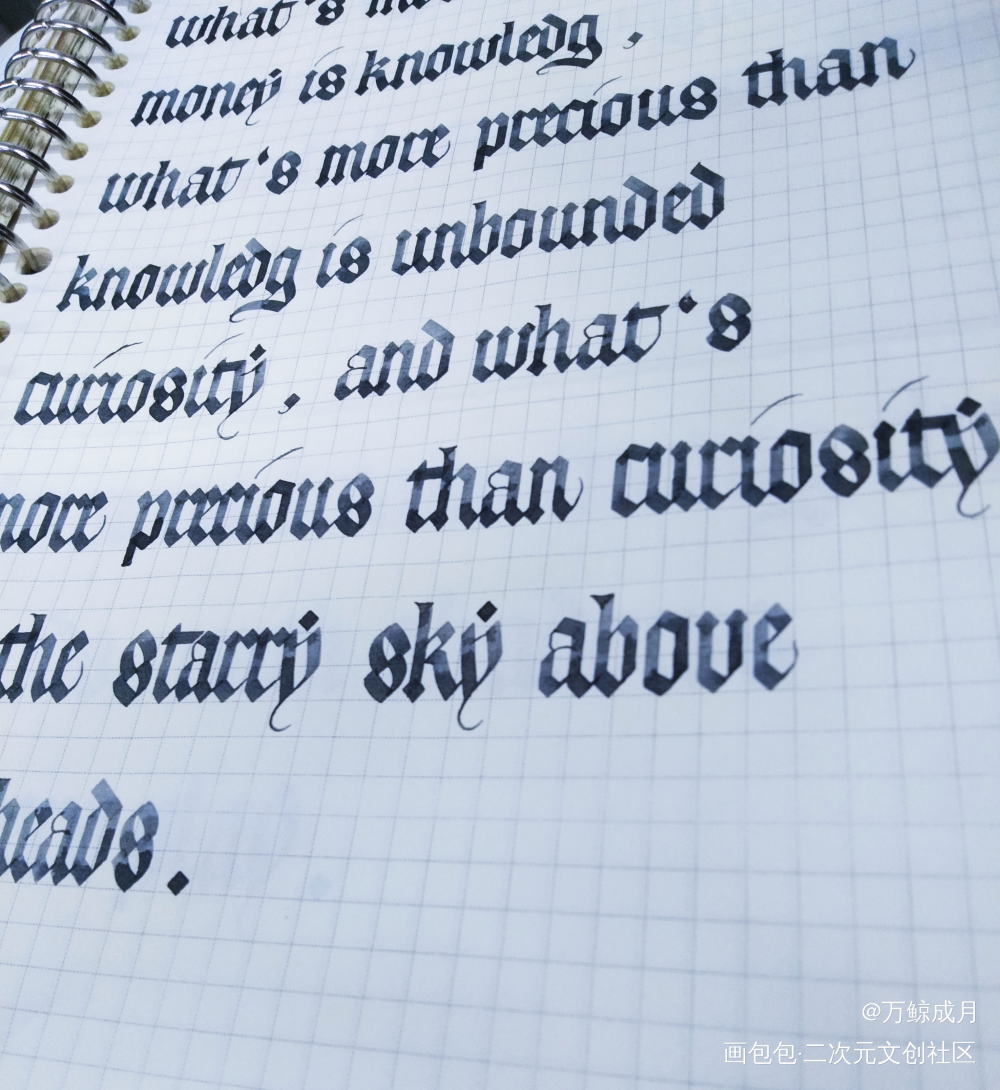 what's
money is knowledg,
what's more precious than
knowledg is unbounded
curiosity, and what's
more precious than curiosity
the starry sky above
heads.
@万鲸成月
画包包·二次元文创社区